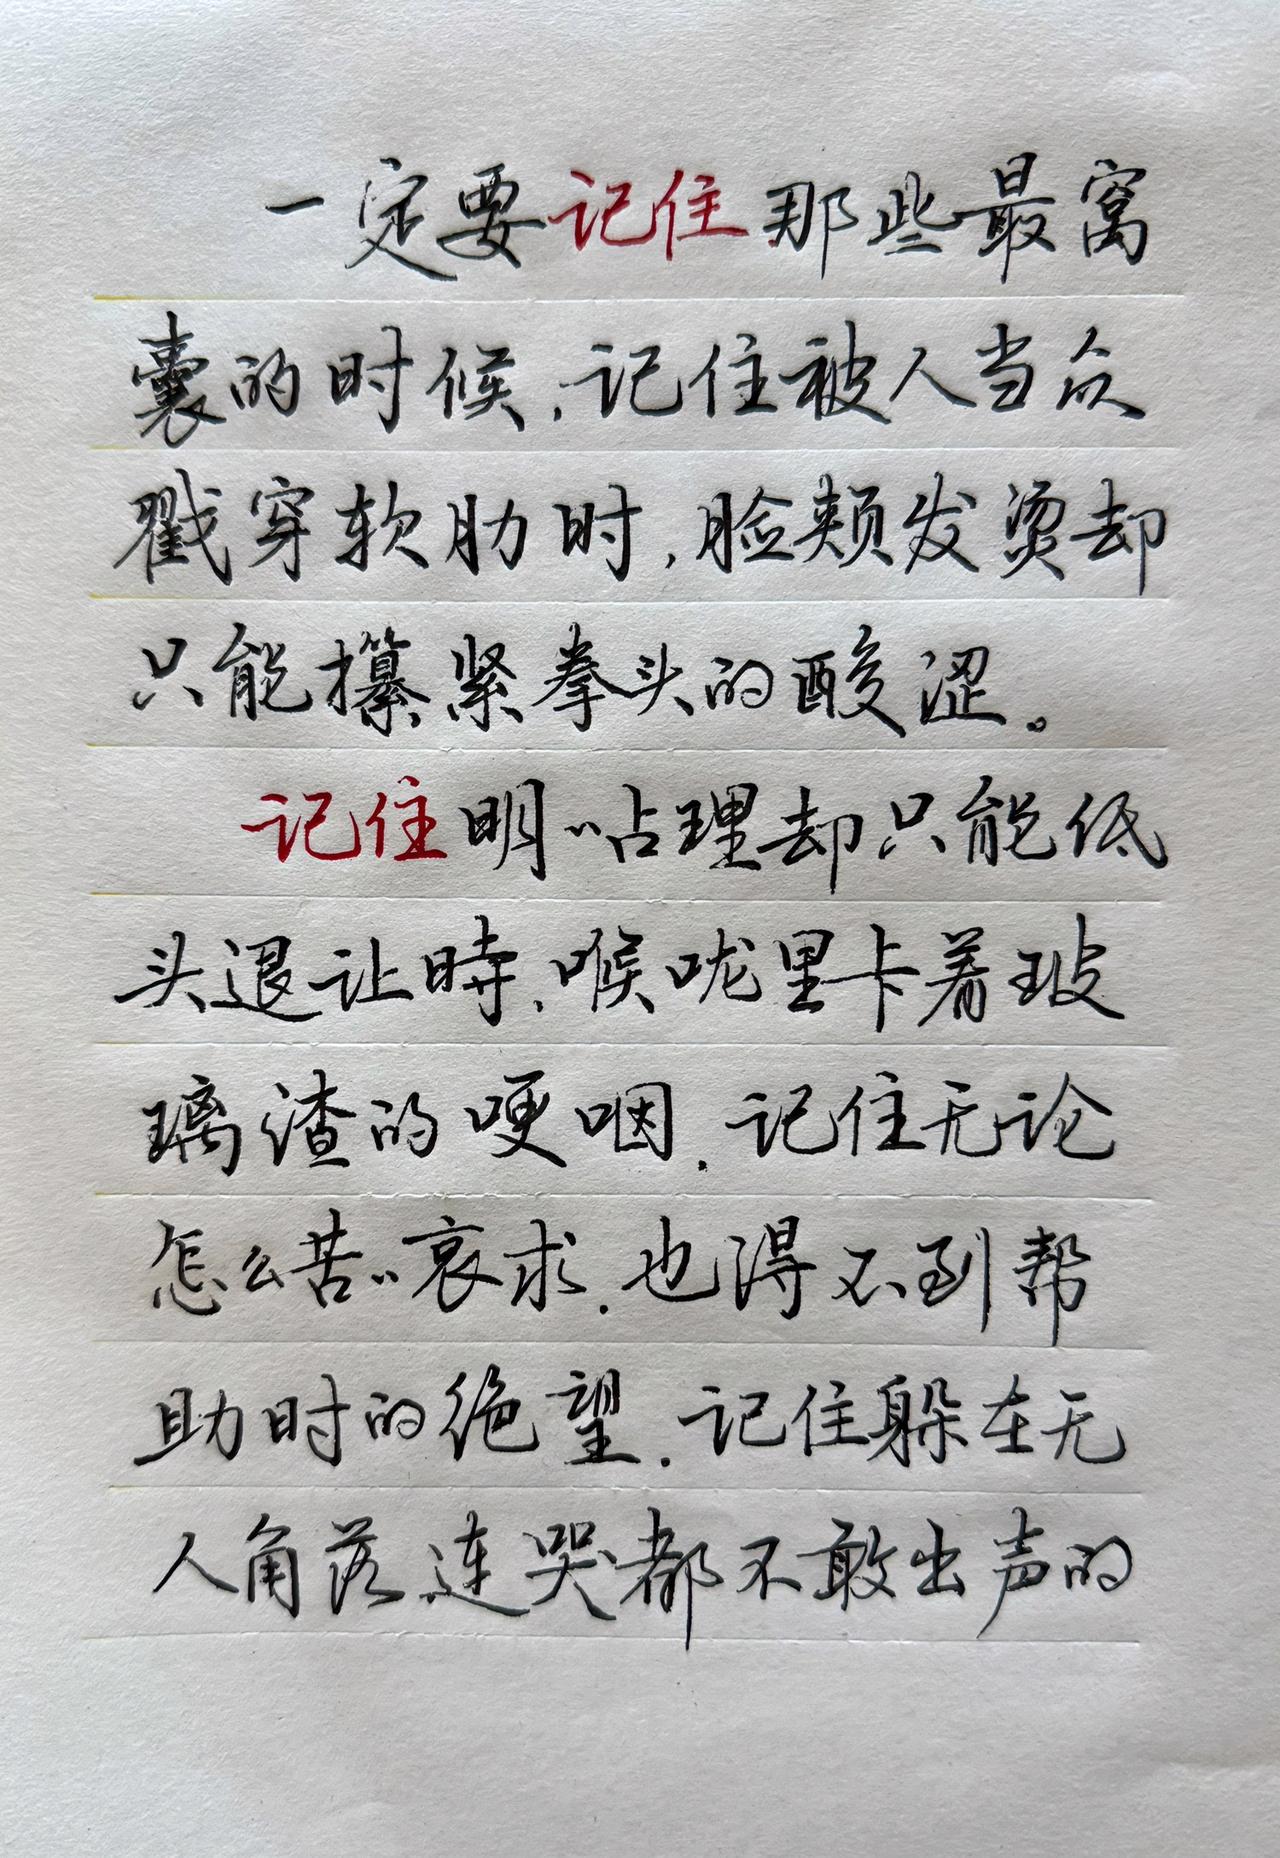 一定要记住那些最窝
囊的时候，记住被人当众
戳穿软肋时，脸颊发烫却
只能攥紧拳头的酸涩。
记住明〃占理却只能低
头退让時，喉咙里卡着玻
璃渣的哽咽，记住无论
怎么苦〃哀求，也得不到帮
助时的绝望，记住躲在无
人角落连哭都不敢出声的